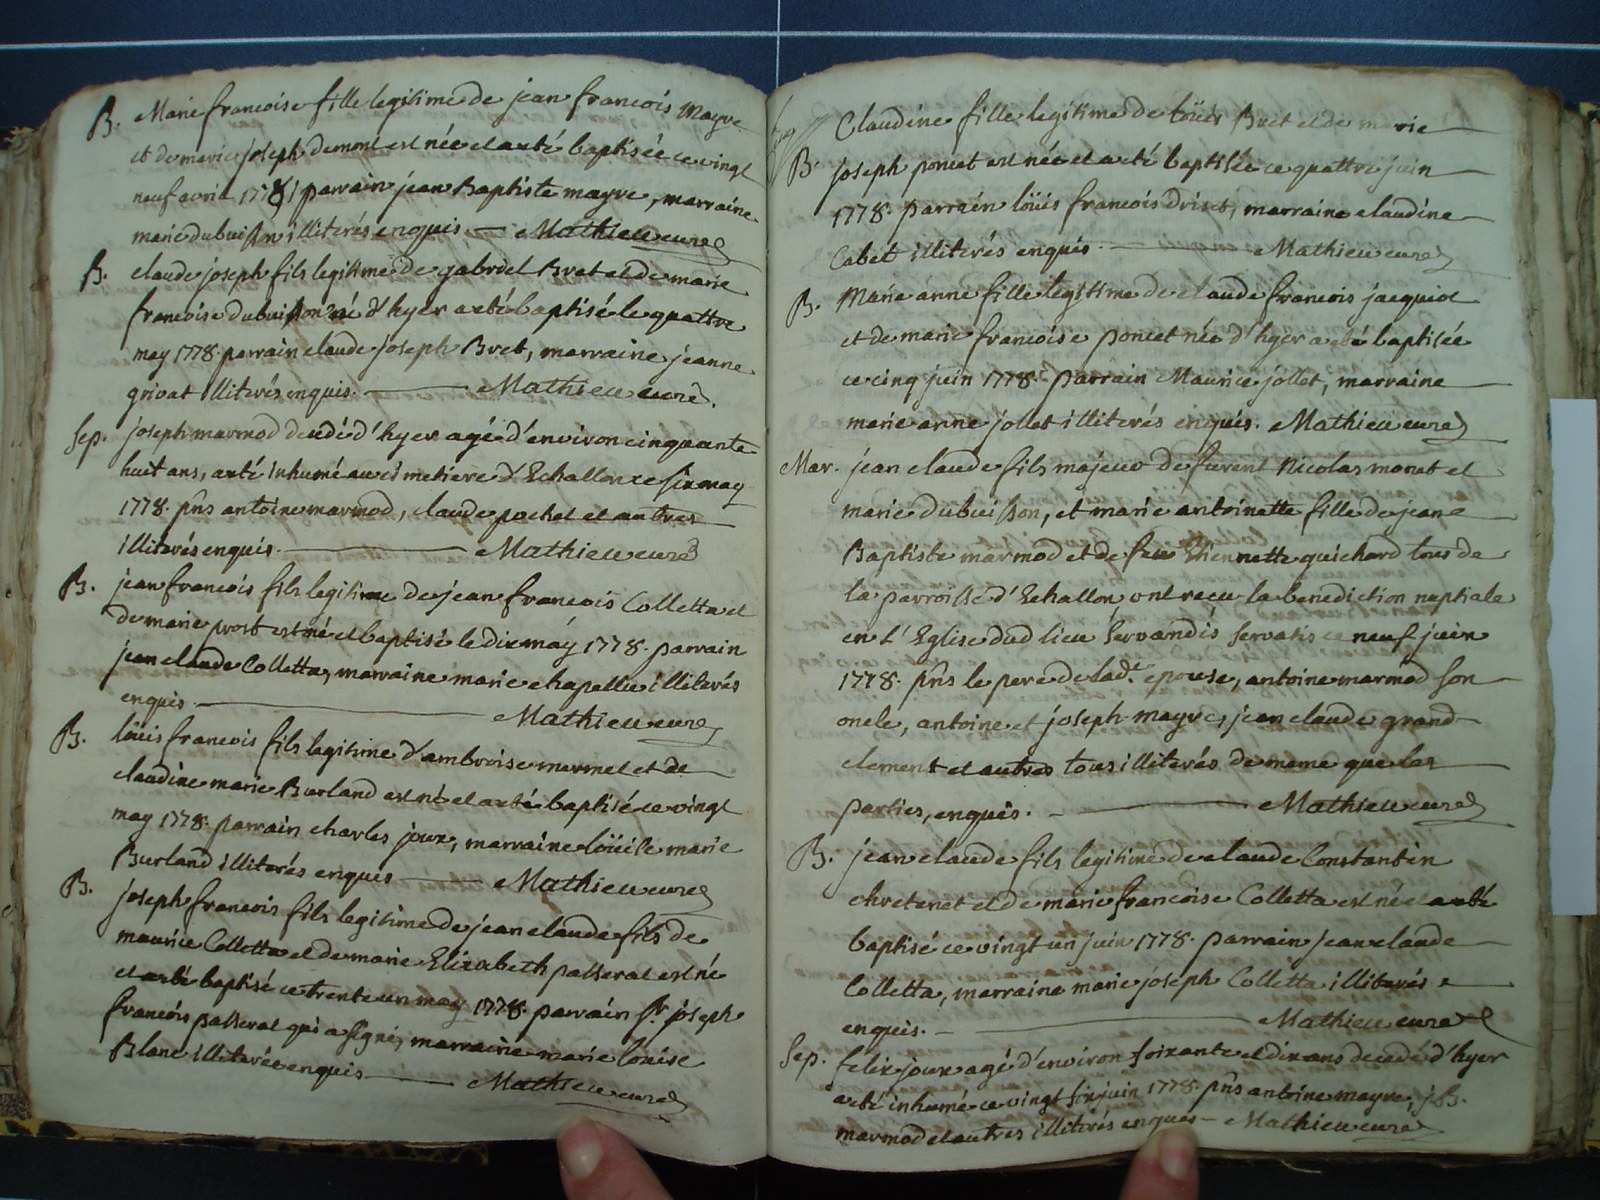 B. Marie francoise fille legitime de jean francois Mayve
et de marie joseph demont est née et a eté baptisée ce vingt
neuf avril 1778 parrain jean Baptiste mayve, marraine
marie dubuisson illiterés enquis Mathieu curé
B. claude joseph fils legitime de gabriel Bret et de marie
francoise dubuisson né d'hyer a eté baptisé le quattre
may 1778. parrain claude joseph Bret, marraine jeanne
grivat illiterés enquis. Mathieu curé.
Sep. joseph marmod decédé d'hyer agé d'environ cinquante
huit ans, a eté inhumé au cimetiere d'Echallon ce six may
1778. pñs antoine marmod, claude pochet et autres
illiterés enquis. Mathieu curé
B. jean francois fils legitime de jean francois Colletta et
de marie prost est né et baptisé le dix may 1778. parrain
jean claude Colletta, marraine marie chapellu illiterés
enquis Mathieu curé
B. loüis francois fils legitime d'ambroise mermet et de
claudine marie Burland est né et a eté baptisé ce vingt
may 1778. parrain charles joux, marraine loüise marie
Burland illiterés enquis Mathieu curé
B. joseph francois fils legitime de jean claude fils de
maurice Colletta et de marie Elizabeth passerat est né
et a eté baptisé ce trente un may 1778. parrain Sr. joseph
francois passerat qui a signé, marraine marie loüise
Blanc illiterée enquis Mathieu curé
Claudine fille legitime de loüis Bret et de marie
B. joseph poncet est née et a eté baptisée ce quattre juin
1778. parrain loüis francois drivet, marraine claudine
Cabet illiterés enquis. Mathieu curé
B. Marie anne fille legitime de claude francois jacquiot
et de marie francoise poncet née d'hyer a eté baptisée
ce cinq juin 1778. parrain Maurice jollet, marraine
marie anne jollet illiterés enquis. Mathieu curé
Mar. jean claude fils majeur de furent Nicolas monet et
marie dubuisson, et marie antoinette fille de jean
Baptiste marmod et de feue Etiennette guichard tous de
la parroisse d'Echallon ont recu la benediction nuptiale
en L'Eglise dud lieu servandis servatis ce neuf juin
1778. pñs le pere de lade. epouse, antoine marmod son
oncle, antoine et joseph mayve, jean claude grand
clement et autres tous illiterés de meme que les
parties, enquis. Mathieu curé
B. jean claude fils legitime de claude Constantin
chretenet et de marie francoise Colletta est né et a eté
baptisé ce vingt un juin 1778. parrain jean claude
Colletta, marraine marie joseph Colletta illiterés
enquis. Mathieu curé
Sep. felix joux agé d'environ soixante et dix ans decedé d'hyer
a eté inhumé ce vingt six juin 1778. pñs antoine mayve, j. B.
marmod et autres illiterés enquis Mathieu curé